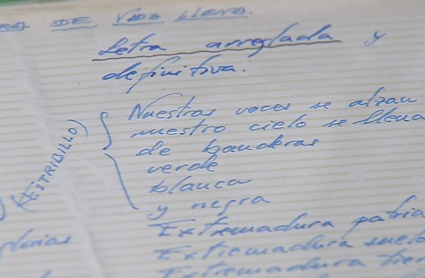 DE VIDA LLENA.
Letra arreglada y
definitiva.
(ESTRIBILLO)
Nuestras voces se alzan
nuestro cielo se llena
de banderas
verde
blanca
y negra
Extremadura patria
glorias
Extremadura suelo
Extremadura